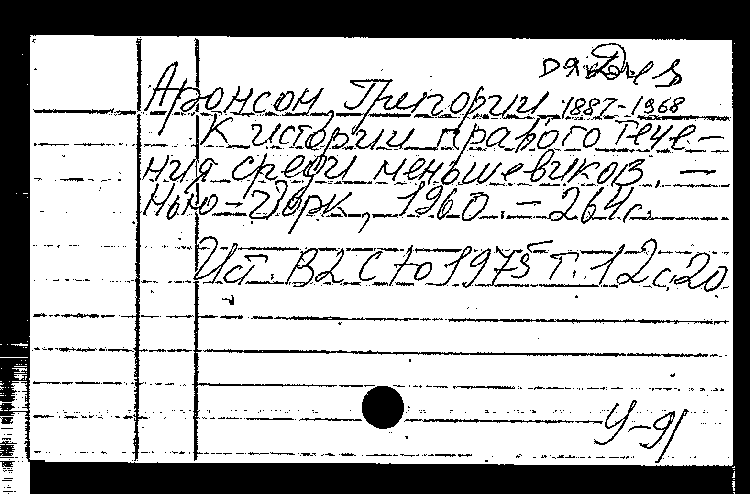 Аронсон, Григорий 1887-1968
К истории правого тече-
ния среди меньшевиков. —
Нью-Йорк, 1960. — 264с.
Ист. В2 С to 1975 т. 12 с.20
У-91